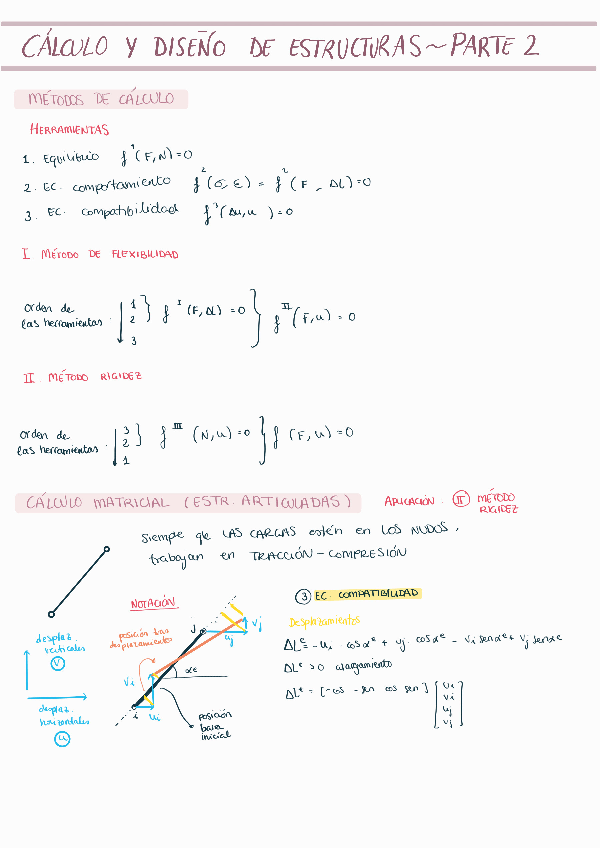 CÁLCULO Y DISEÑO DE ESTRUCTURAS ~ PARTE 2
MÉTODOS DE CÁLCULO
HERRAMIENTAS
1. Equilibrio f¹(F,N)=0
2. EC. comportamiento f²(σ,ε) = f²(F, ΔL)=0
3. EC. compatibilidad f³(Δu,u )=0
I MÉTODO DE FLEXIBILIDAD
orden de
las herramientas.
1
2
3
} f^I (F,ΔL) =0 } f^II (F,u) =0
II. MÉTODO RIGIDEZ
orden de
las herramientas.
3
2
1
} f^III (N,u) =0 } f (F,u) =0
CÁLCULO MATRICIAL (ESTR. ARTICULADAS)
APLICACIÓN. II MÉTODO
RIGIDEZ
siempe qe LAS CARGAS estén en LOS NUDOS,
trabajan en TRACCIÓN-COMPRESIÓN
NOTACIÓN
desplaz.
verticales
V
desplaz.
horizontales
u
posición tras
desplazamientos
j
vj
uj
αe
vi
i
ui
posición
barra
inicial
3 EC. COMPATIBILIDAD
Desplazamientos
ΔLᵉ= -ui · cosαᵉ + uj · cosαᵉ - vi senαᵉ + vj senαe
ΔLᵉ >0 alargamiento
ΔLᵉ = [-cos -sen cos sen] [ui
vi
uj
vj]